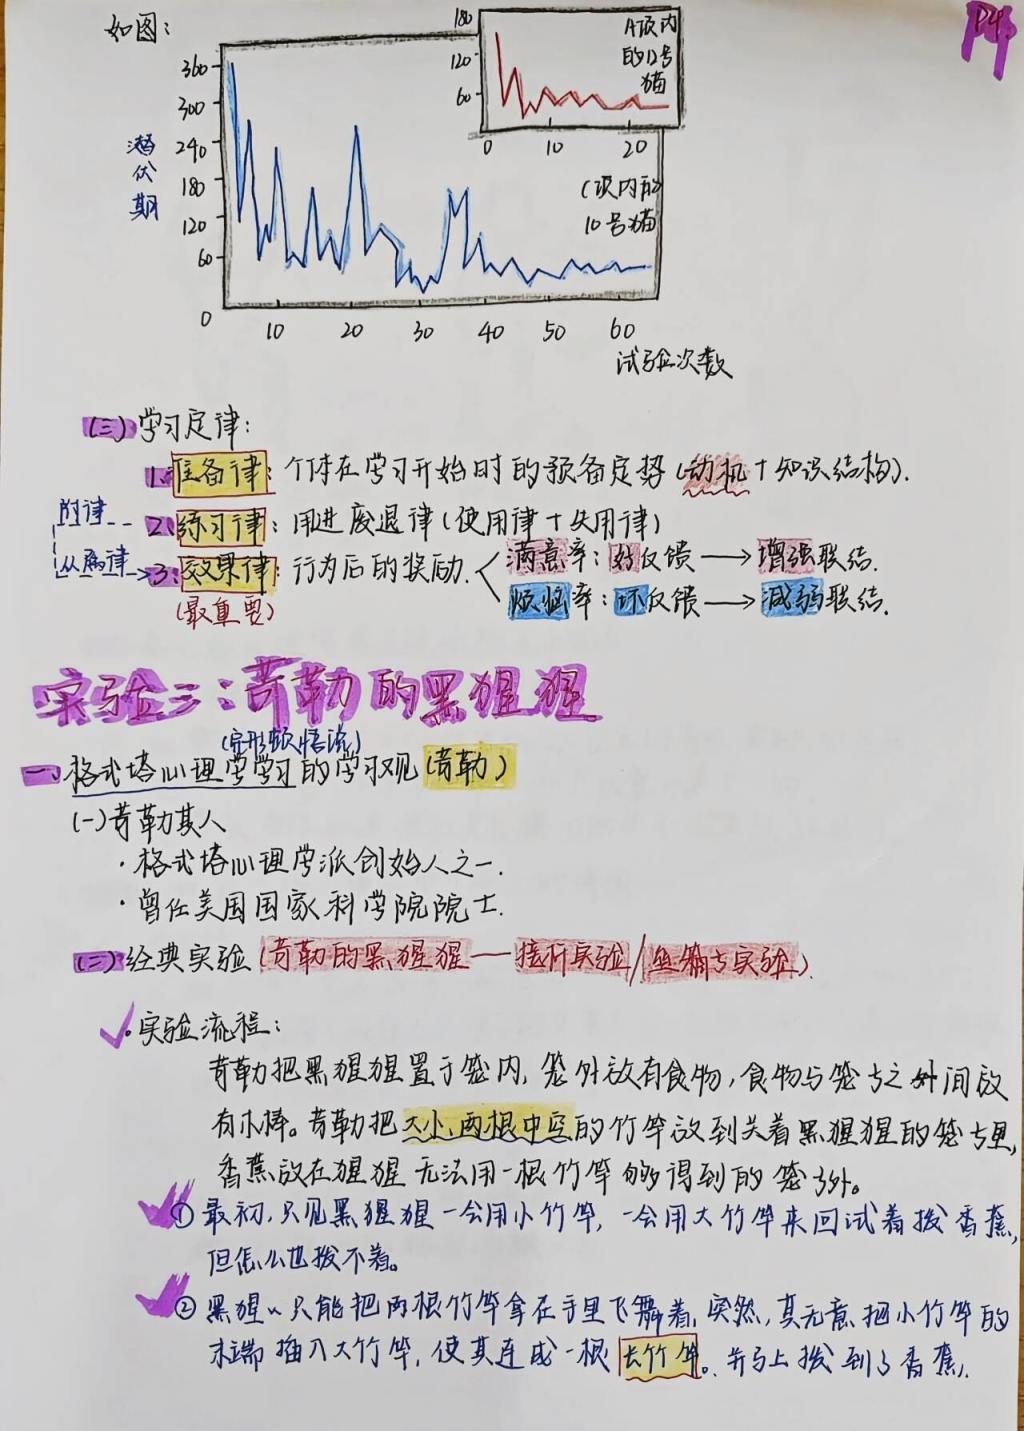 P4.
如图：
360
300
240
180
120
60
0
潜伏期
10 20 30 40 50 60
试验次数
180
120
60
0 10 20
A项内
的12号
猫
(项内的
10号猫
(三)学习定律：
1.准备律：个体在学习开始时的预备定势(动机+知识结构).
附律
2.练习律：用进废退律(使用律+失用律)
从属律
3.效果律：行为后的奖励.
满意率：好反馈→增强联结.
烦恼率：坏反馈→减弱联结.
(最重要)
实验三：苛勒的黑猩猩
(完形顿悟说)
一、格式塔心理学学习的学习观(苛勒)
(一)苛勒其人
·格式塔心理学派创始人之一.
·曾任美国国家科学院院士.
(二)经典实验(苛勒的黑猩猩——接杆实验/叠箱实验).
·实验流程：
苛勒把黑猩猩置于笼内，笼外放有食物，食物与笼与之间放
有木棒。苛勒把大小两根中空的竹竿放到关着黑猩猩的笼里,
香蕉放在猩猩无法用一根竹竿够得到的笼外。
①最初，只见黑猩猩一会用小竹竿，一会用大竹竿来回试着拨香蕉,
但怎么也拨不着。
②黑猩〃只能把两根竹竿拿在手里飞舞着，突然，其无意把小竹竿的
末端插入大竹竿，使其连成一根长竹竿。并马上拨到了香蕉.